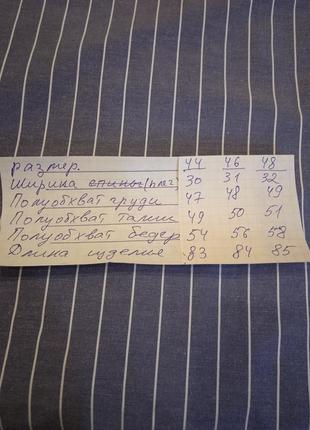 размер. 44 46 48
Ширина спины (плеч) 30 31 32
Полуобхват груди 47 48 49
Полуобхват талии 49 50 51
Полуобхват бедер 54 56 58
Длина изделия 83 84 85